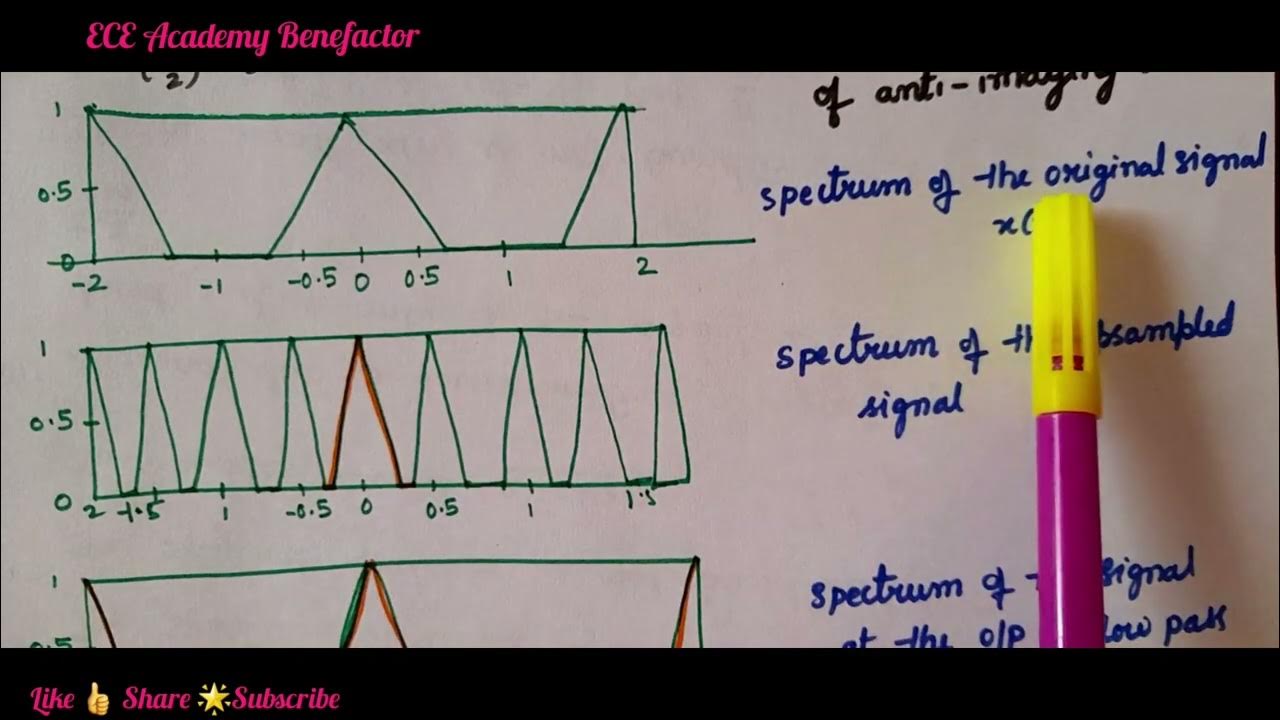 ECE Academy Benefactor
of anti-imaging
1
0.5
0
-2 -1 -0.5 0 0.5 1 2
spectrum of the original signal
x(
1
0.5
0
2 -1.5 1 -0.5 0 0.5 1 1.5
spectrum of the bsampled
signal
1
0.5
spectrum of signal
at the o/p low pass
Like 👍 Share 🌟Subscribe